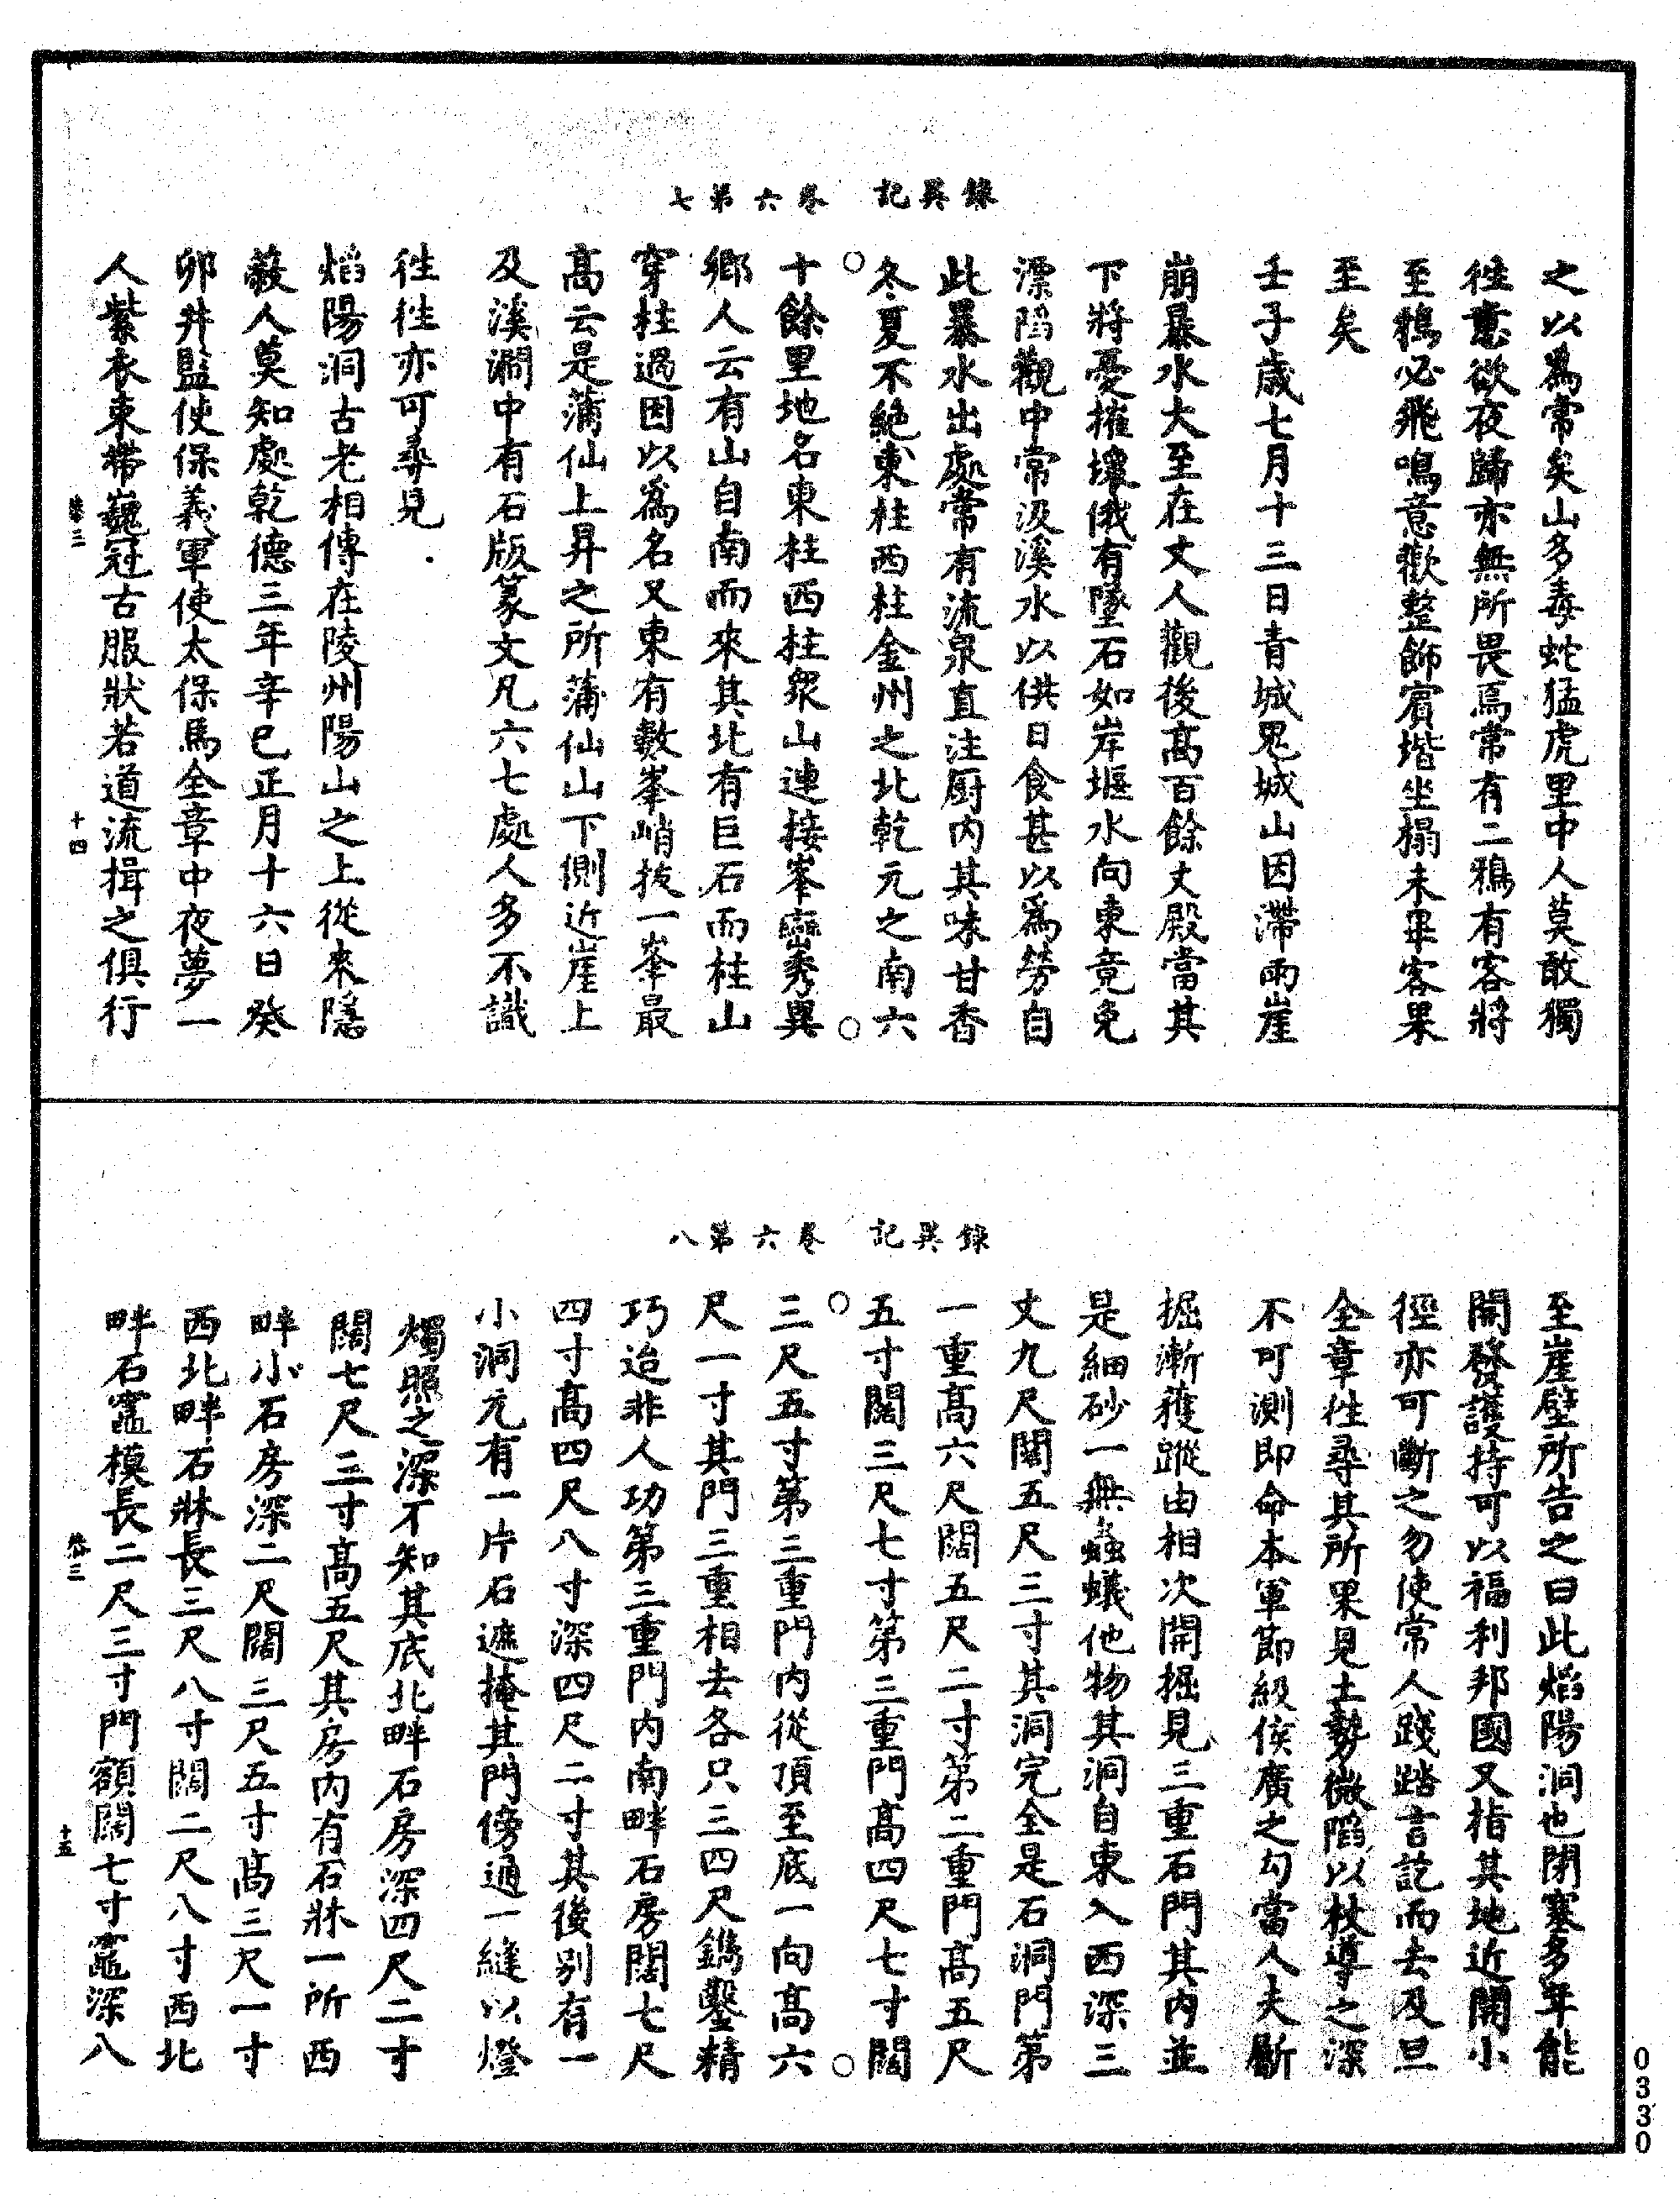 錄異記 卷六第七
之以爲常矣山多毒蛇猛虎里中人莫敢獨
徃意欲夜歸亦無所畏焉常有二鴉有客將
至鴉必飛鳴意歡整飾賓堦坐榻未畢客果
至矣
壬子歲七月十三日青城鬼城山因滯雨崖
崩暴水大至在丈人觀後高百餘丈殿當其
下將憂摧壞俄有墜石如岸堰水向東竟免
漂陷觀中常汲溪水以供日食甚以爲勞自
此暴水出處常有流泉直注厨内其味甘香
冬夏不絶東柱西柱金州之北乾元之南六
十餘里地名東柱西柱衆山連接峯巒秀異
鄉人云有山自南而來其北有巨石而柱山
穿柱過因以爲名又東有數峯峭拔一峯最
高云是蒲仙上昇之所蒲仙山下側近崖上
及溪澗中有石版篆文凡六七處人多不識
徃徃亦可尋見
焰陽洞古老相傳在陵州陽山之上從來隱
蔽人莫知處乾德三年辛巳正月十六日癸
卯井監使保義軍使太保馬全章中夜夢一
人紫衣束帶巍冠古服狀若道流揖之俱行
恭三
十四
錄異記 卷六第八
至崖壁所告之曰此焰陽洞也閉塞多年能
開發護持可以福利邦國又指其地近開小
徑亦可斷之勿使常人踐踏言訖而去及旦
全章徃尋其所果見土勢微陷以杖導之深
不可測即命本軍節級侯廣之勾當人夫斸
掘漸獲蹤由相次開掘見三重石門其内並
是細砂一無蟲蟻他物其洞自東入西深三
丈九尺闊五尺三寸其洞完全是石洞門第
一重高六尺闊五尺二寸第二重門高五尺
五寸闊三尺七寸第三重門高四尺七寸闊
三尺五寸第三重門内從頂至底一向高六
尺一寸其門三重相去各只三四尺鐫鑿精
巧迨非人功第三重門内南畔石房闊七尺
四寸高四尺八寸深四尺二寸其後别有一
小洞元有一片石遮掩其門傍通一縫以燈
燭照之深不知其底北畔石房深四尺二寸
闊七尺三寸高五尺其房内有石牀一所西
畔小石房深二尺闊三尺五寸高三尺一寸
西北畔石牀長三尺八寸闊二尺八寸西北
畔石竈模長二尺三寸門額闊七寸竈深八
恭三
十五
0330